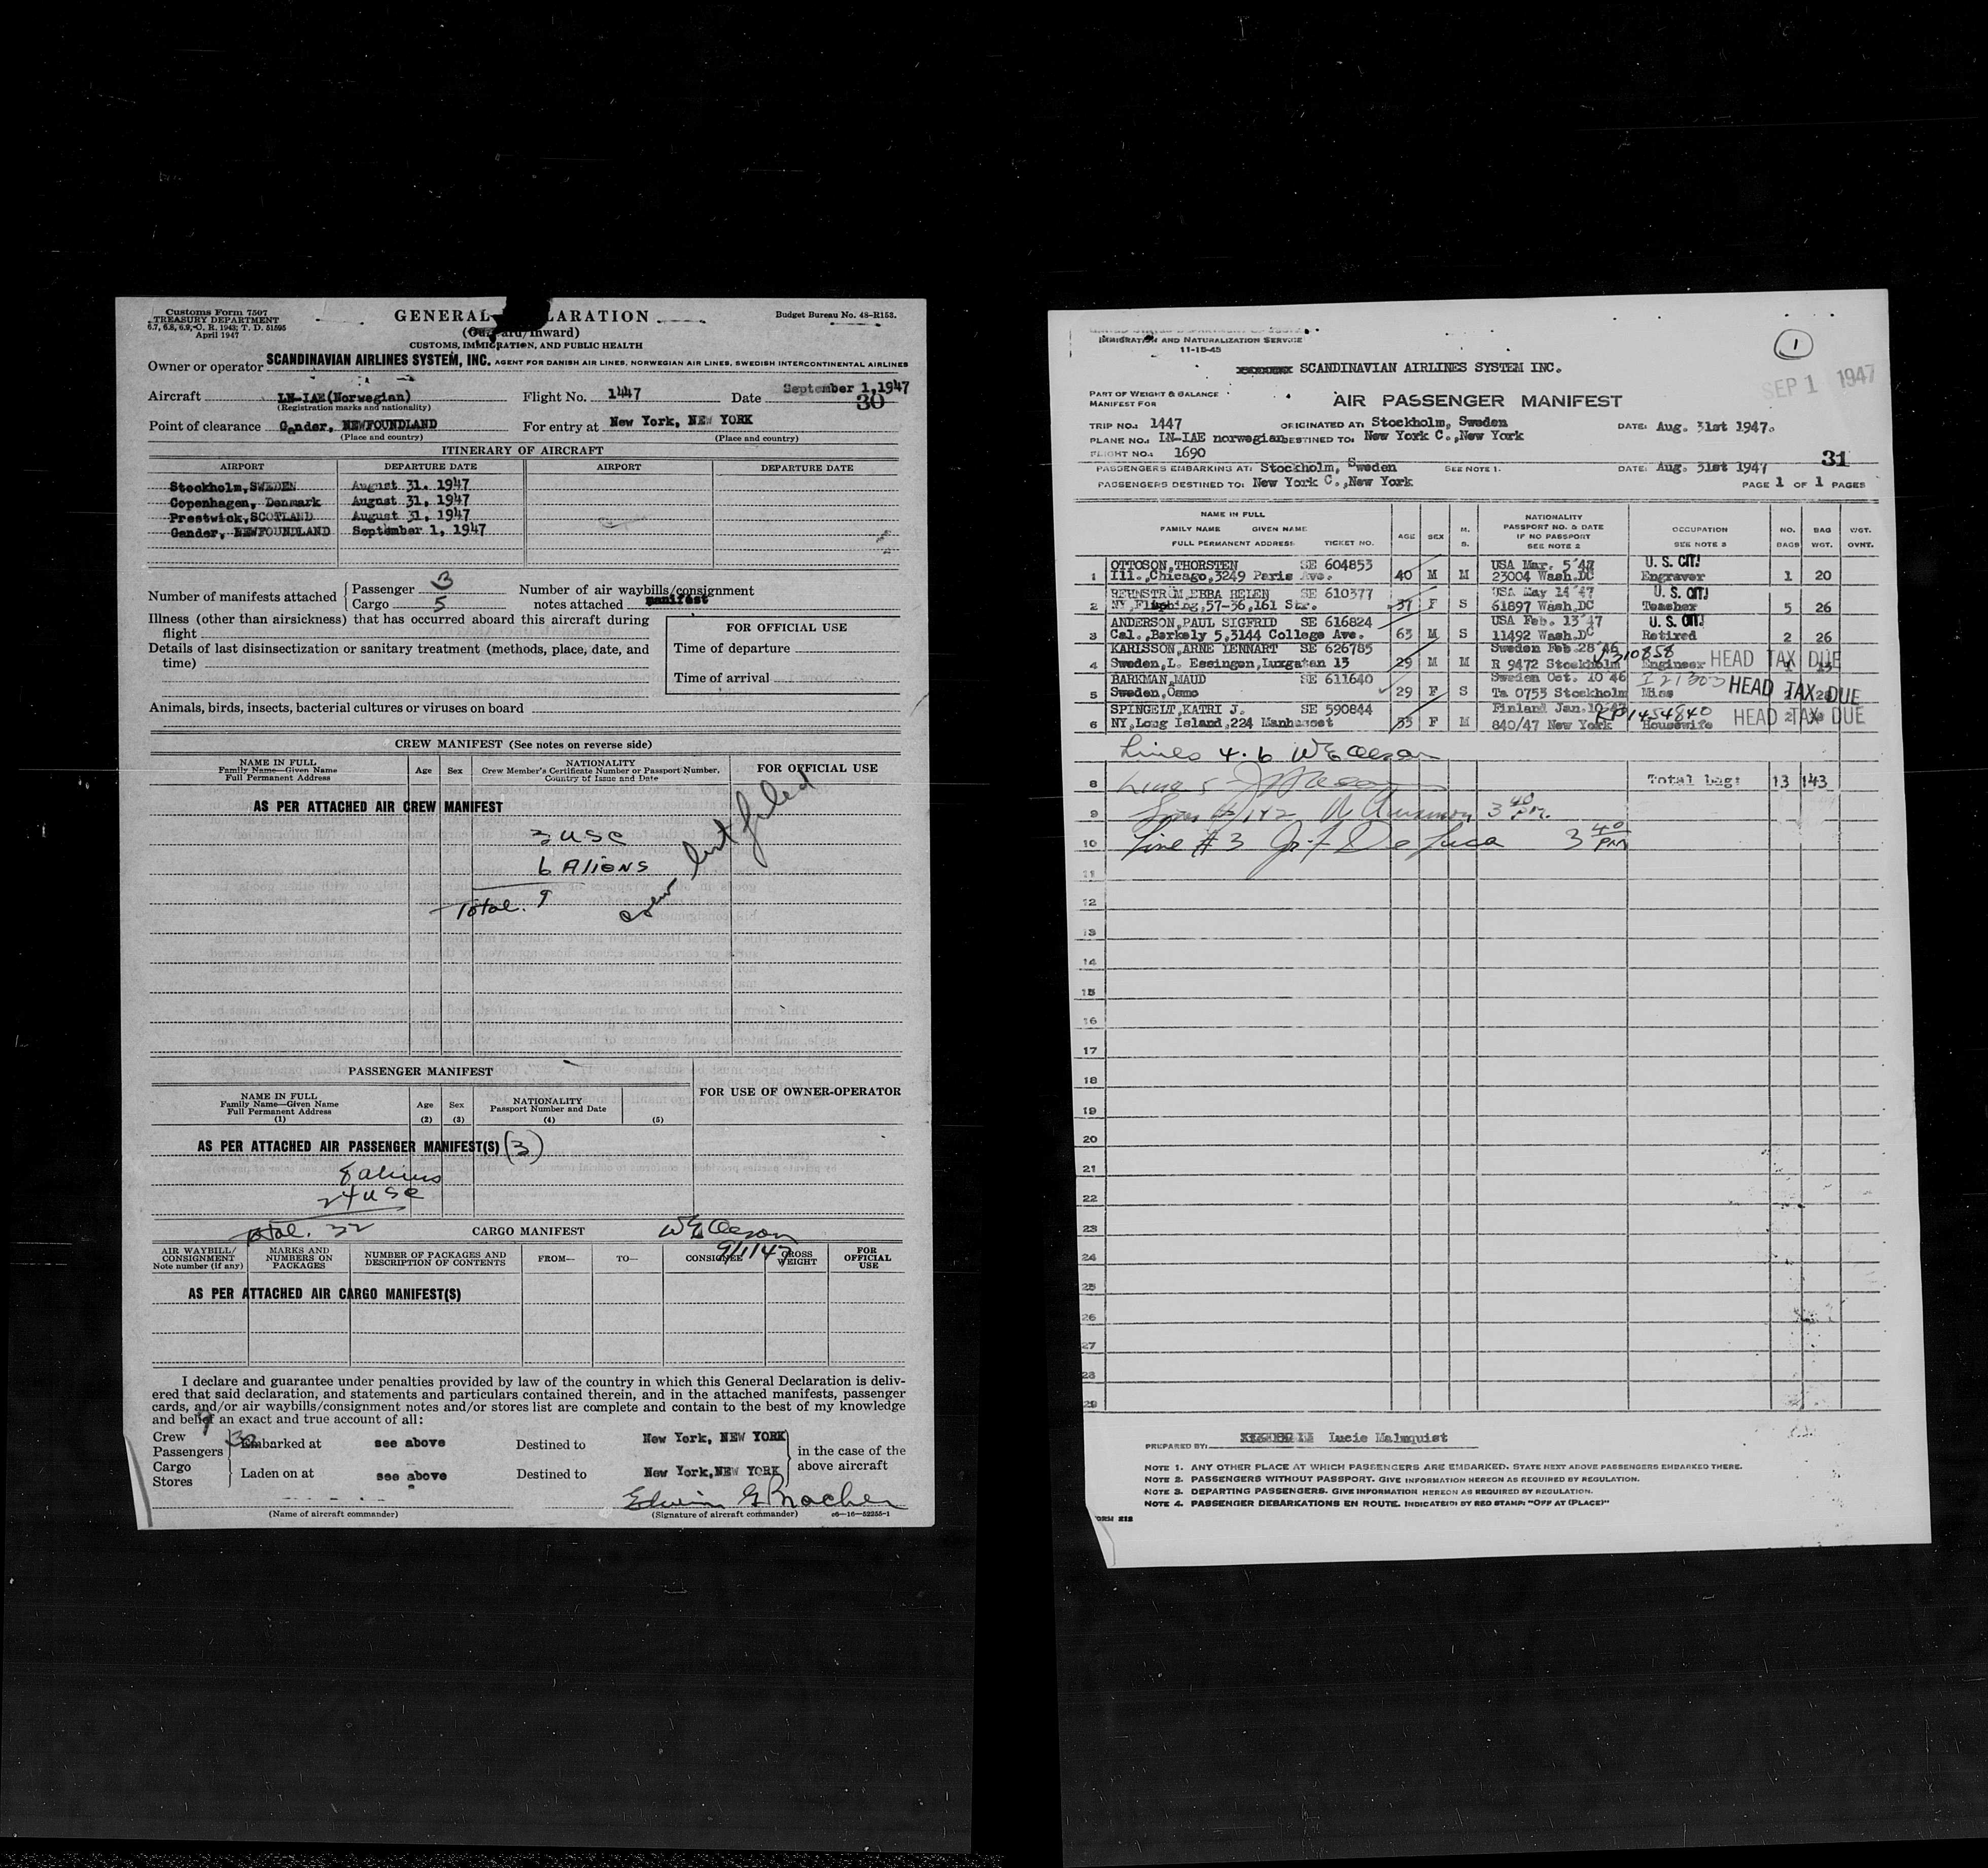 Customs Form 7507
TREASURY DEPARTMENT
6.7, 6.8, 6.9, C. R. 1943; T. D. 51595
April 1947
GENERAL LARATION
(Inward)
CUSTOMS, IMMIGRATION, AND PUBLIC HEALTH
Budget Bureau No. 48-R153.
Owner or operator SCANDINAVIAN AIRLINES SYSTEM, INC. AGENT FOR DANISH AIR LINES, NORWEGIAN AIR LINES, SWEDISH INTERCONTINENTAL AIRLINES
Aircraft LN-IAE(Norwegian) Flight No. 1447 Date September 1,1947
(Registration marks and nationality) 30
Point of clearance Gander, NEWFOUNDLAND For entry at New York, NEW YORK
(Place and country) (Place and country)
ITINERARY OF AIRCRAFT
AIRPORT DEPARTURE DATE AIRPORT DEPARTURE DATE
Stockholm,SWEDEN August 31. 1947
Copenhagen, Denmark August 31, 1947
Prestwick,SCOTLAND August 31, 1947
Gander, NEWFOUNDLAND September 1, 1947
Number of manifests attached Passenger 3 Number of air waybills/consignment
Cargo 5 notes attached manifest
Illness (other than airsickness) that has occurred aboard this aircraft during
flight
Details of last disinsectization or sanitary treatment (methods, place, date, and
time)
FOR OFFICIAL USE
Time of departure
Time of arrival
Animals, birds, insects, bacterial cultures or viruses on board
CREW MANIFEST (See notes on reverse side)
NAME IN FULL
Family Name—Given Name
Full Permanent Address
Age Sex
NATIONALITY
Crew Member's Certificate Number or Passport Number,
Country of Issue and Date
FOR OFFICIAL USE
AS PER ATTACHED AIR CREW MANIFEST
3 USC
6 Aliens
Total. 9
crew list filed
PASSENGER MANIFEST
NAME IN FULL
Family Name—Given Name
Full Permanent Address
(1)
Age
(2)
Sex
(3)
NATIONALITY
Passport Number and Date
(4)
(5)
FOR USE OF OWNER-OPERATOR
AS PER ATTACHED AIR PASSENGER MANIFEST(S) (3)
8 aliens
24 USC
Total. 32
CARGO MANIFEST
9/1/47
AIR WAYBILL/
CONSIGNMENT
Note number (if any)
MARKS AND
NUMBERS ON
PACKAGES
NUMBER OF PACKAGES AND
DESCRIPTION OF CONTENTS
FROM—
TO—
CONSIGNEE
GROSS
WEIGHT
FOR
OFFICIAL
USE
AS PER ATTACHED AIR CARGO MANIFEST(S)
I declare and guarantee under penalties provided by law of the country in which this General Declaration is deliv-
ered that said declaration, and statements and particulars contained therein, and in the attached manifests, passenger
cards, and/or air waybills/consignment notes and/or stores list are complete and contain to the best of my knowledge
and belief an exact and true account of all:
Crew 9
Passengers 32
Cargo
Stores
Embarked at see above Destined to New York, NEW YORK
Laden on at see above Destined to New York,NEW YORK
in the case of the
above aircraft
(Name of aircraft commander) (Signature of aircraft commander) c6—16—52255-1
IMMIGRATION AND NATURALIZATION SERVICE
11-15-45
1
SCANDINAVIAN AIRLINES SYSTEM INC.
SEP 1 1947
PART OF WEIGHT & BALANCE
MANIFEST FOR
AIR PASSENGER MANIFEST
TRIP NO.: 1447 ORIGINATED AT: Stockholm, Sweden DATE: Aug. 31st 1947.
PLANE NO.: LN-IAE norwegian DESTINED TO: New York C.,New York
FLIGHT NO.: 1690
31
PASSENGERS EMBARKING AT: Stockholm, Sweden SEE NOTE 1. DATE: Aug. 31st 1947
PASSENGERS DESTINED TO: New York C.,New York PAGE 1 OF 1 PAGES
NAME IN FULL
FAMILY NAME GIVEN NAME
FULL PERMANENT ADDRESS TICKET NO.
AGE SEX M. S.
NATIONALITY
PASSPORT NO. & DATE
IF NO PASSPORT
SEE NOTE 2
OCCUPATION
SEE NOTE 3
NO. BAGS
BAG WGT.
WGT. OVNT.
OTTOSON,THORSTEN SE 604853 USA Mar. 5'47 U. S. CIT.
1 Ill.,Chicago,3249 Paris Ave. 40 M M 23004 Wash.DC Engraver 1 20
REHNSTRÖM,EBBA HELEN SE 610377 USA May 14'47 U. S. CIT.
2 NY,Flushing,57-36,161 Str. 37 F S 61897 Wash.DC Teacher 5 26
ANDERSON,PAUL SIGFRID SE 616824 USA Feb. 13'47 U. S. CIT.
3 Cal.,Berkely 5,3144 College Ave. 63 M S 11492 Wash.DC Retired 2 26
KARLSSON,ARNE LENNART SE 626785 Sweden Feb.28'46 V310858
4 Sweden,L. Essingen,Luxgatan 13 29 M M R 9472 Stockholm Engineer HEAD TAX DUE
BARKMAN,MAUD SE 611640 Sweden Oct. 10'46 I 21303
5 Sweden,Ösmo 29 F S Ta 0753 Stockholm Miss HEAD TAX DUE
SPINGELT,KATRI J. SE 590844 Finland Jan.10'47 RP1454840
6 NY,Long Island,224 Manhasset 53 F M 840/47 New York Housewife HEAD TAX DUE
Lines 4. 6
8 Line 5 Total bag: 13 143
9 3 40 PM.
10 Line # 3 De Luca 3 40 PM
11
12
13
14
15
16
17
18
19
20
21
22
23
24
25
26
27
28
29
PREPARED BY: Lucie Malmquist
NOTE 1. ANY OTHER PLACE AT WHICH PASSENGERS ARE EMBARKED. STATE NEXT ABOVE PASSENGERS EMBARKED THERE.
NOTE 2. PASSENGERS WITHOUT PASSPORT. GIVE INFORMATION HEREON AS REQUIRED BY REGULATION.
NOTE 3. DEPARTING PASSENGERS. GIVE INFORMATION HEREON AS REQUIRED BY REGULATION.
NOTE 4. PASSENGER DEBARKATIONS EN ROUTE. INDICATE(D) BY RED STAMP: "OFF AT (PLACE)"
FORM 212